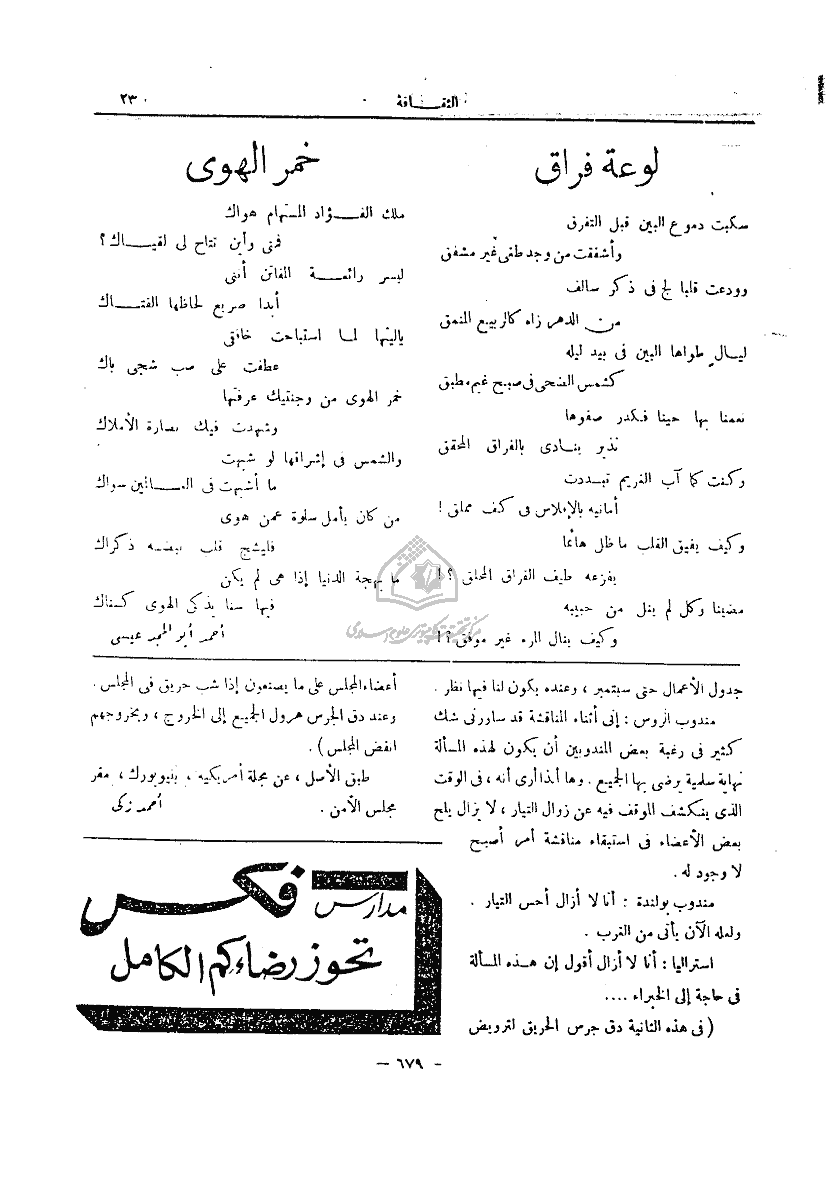 الثقافة
٢٣
لوعة فراق
سكبت دموع البين قبل التفرق
وأشفقت من وجد طغى غير مشفق
وودعت قلبا لج فى ذكر سالف
من الدهر زاه كالربيع المنمق
ليال طواها البين فى بيد ليله
كشمس الضحى فى صبح غيم مطبق
نعمنا بها حينا فكدر صفوها
نذير ينادى بالفراق المحقق
وكنت كما آب الغريم تبددت
أمانيه بالإفلاس فى كف مملق !
وكيف يفيق القلب ما ظل هائما
يفزعه طيف الفراق المحلق ؟ !
مضينا وكل لم ينل من حبيبه
وكيف ينال المرء غير موفق ؟ !
خمر الهوى
ملك الفؤاد المستهام هواك
فمتى وأين تتاح لى لقياك ؟
ليسر رائعة المفاتن أننى
أبدا صريع لحاظها الفتاك
ياليتها لما استباحت خافقى
عطفت على صب شجى باك
خمر الهوى من وجنتيك عرفتها
وشهدت فيك نضارة الأملاك
والشمس فى إشراقها لو شبهت
ما أشبهت فى العالمين سواك
من كان يأمل سلوة عمن هوى
فليشج قلب نبضه ذكراك
ما بهجة الدنيا إذا هى لم يكن
فيها سنا يذكى الهوى كسناك
أحمد أبو المجد عيسى
جدول الأعمال حتى سبتمبر ، وعنده يكون لنا فيها نظر .
مندوب الروس : إنى أثناء المناقشة قد ساورنى شك
كثير فى رغبة بعض المندوبين أن يكون لهذه المسألة
نهاية سلمية يرضى بها الجميع . وها أنذا أرى أنه ، فى الوقت
الذى ينكشف الموقف فيه عن زوال التيار ، لا يزال يلح
بعض الأعضاء فى استبقاء مناقشة أمر أصبح
لا وجود له .
مندوب بولندة : أنا لا أزال أحس التيار .
ولعله الآن يأتى من الغرب .
استراليا : أنا لا أزال أقول إن هذه المسألة
فى حاجة إلى الخبراء ....
( فى هذه الثانية دق جرس الحريق لترويض
أعضاء المجلس على ما يصنعون إذا شب حريق فى المجلس .
وعند دق الجرس هرول الجميع إلى الخروج ، وبخروجهم
انفض المجلس ) .
طبق الأصل ، عن مجلة أمريكية ، بنيويورك ، مقر
مجلس الأمن .
أحمد زكى
مدارس فكس
تحوز رضاءكم الكامل
— ٦٧٩ —